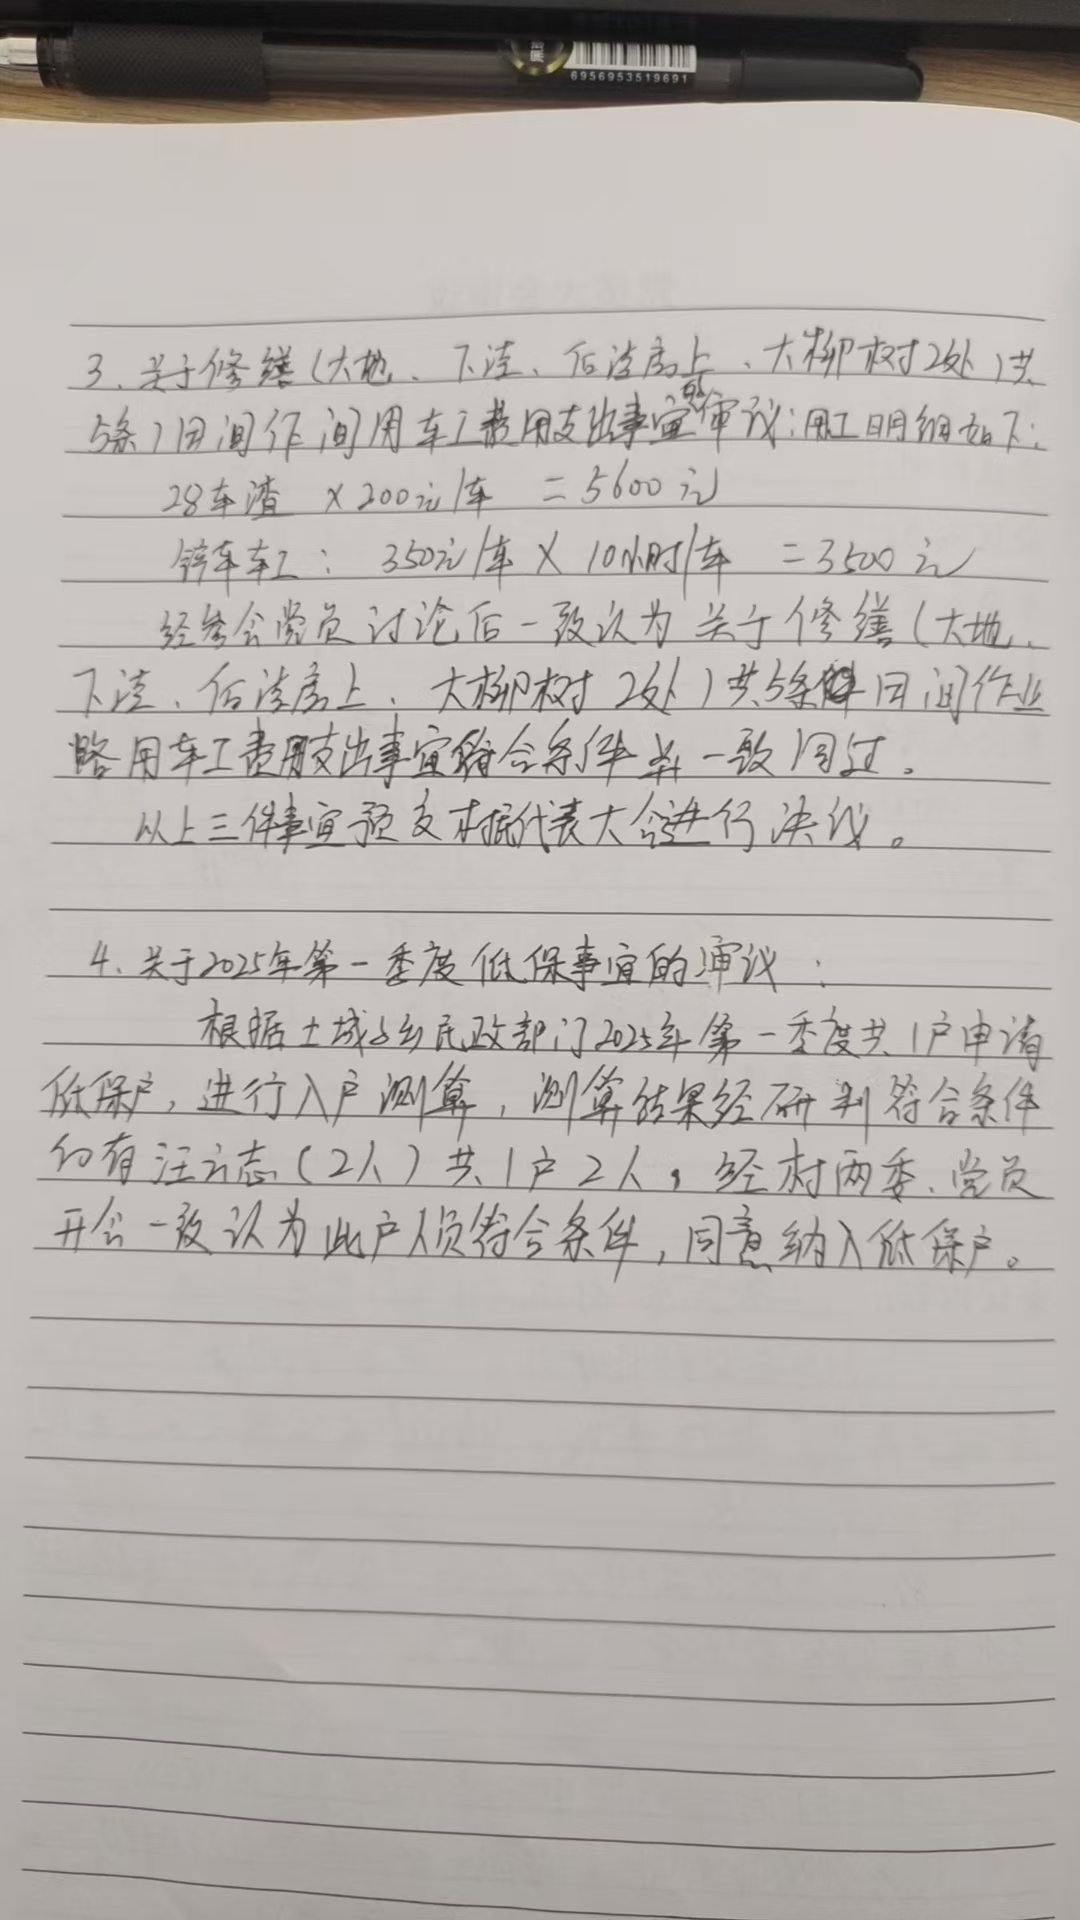 6956953519691
3、关于修缮(大地、下洼、后洼高上、大柳树2处)共
5条)田间作间用车工费用支出事宜的审议:用工明细如下:
28车渣 ×200元/车 =5600元
铲车车工: 350元/车 × 10小时/车 =3500元
经参会党员讨论后一致认为关于修缮(大地、
下洼、后洼高上、大柳树2处)共5条田间作业
路用车工费用支出事宜符合条件并一致同过。
以上三件事宜预交村据代表大会进行决议。
4、关于2025年第一季度低保事宜的审议:
根据土城乡民政部门2025年第一季度共1户申请
低保户,进行入户测算,测算结果经研判符合条件
的有汪立志(2人)共1户2人,经村两委、党员
开会一致认为此户人员符合条件,同意纳入低保户。